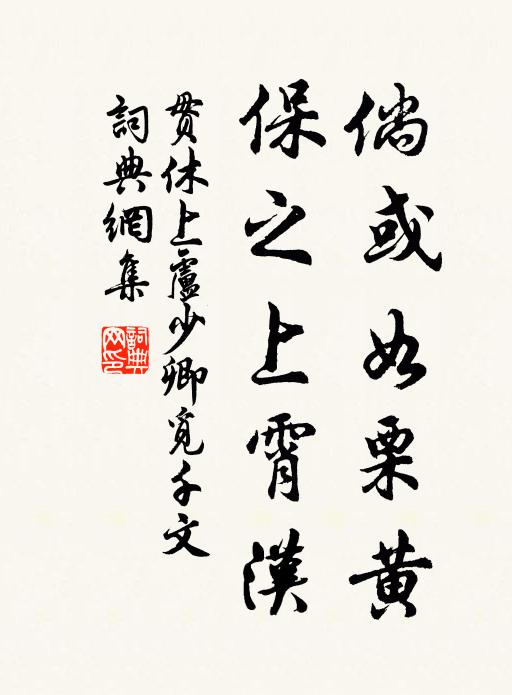 倘或如栗黃
保之上霄漢
貫休上盧少卿覓千文
詞典網集
詞典
网印